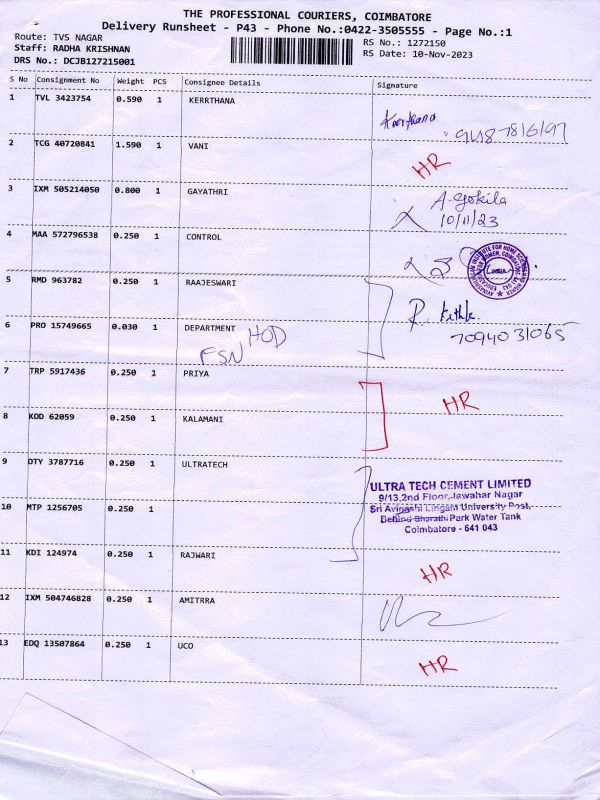 THE PROFESSIONAL COURIERS, COIMBATORE
Delivery Runsheet - P43 - Phone No.:0422-3505555 - Page No.:1
Route: TVS NAGAR
RS No.: 1272150
Staff: RADHA KRISHNAN
RS Date: 10-Nov-2023
DRS No.: DCJB127215001
S No Consignment No Weight PCS Consignee Details Signature
1 TVL 3423754 0.590 1 KERRTHANA
Kerrthana
2 TCG 40720841 1.590 1 VANI
HR
3 IXM 505214050 0.800 1 GAYATHRI
A. Gokila
10/11/23
4 MAA 572796538 0.250 1 CONTROL
5 RMD 963782 0.250 1 RAAJESWARI
6 PRO 15749665 0.030 1 DEPARTMENT
7094031065
FSN HOD
7 TRP 5917436 0.250 1 PRIYA
HR
8 KOD 62059 0.250 1 KALAMANI
9 OTY 3787716 0.250 1 ULTRATECH
ULTRA TECH CEMENT LIMITED
9/13,2nd Floor,Jawahar Nagar
Sri Avinashi Lingam University Post,
10 MTP 1256705 0.250 1
Behind Bharathi Park Water Tank
Coimbatore - 641 043
11 KDI 124974 0.250 1 RAJWARI
HR
12 IXM 504746828 0.250 1 AMITRRA
13 EDQ 13507864 0.250 1 UCO
HR